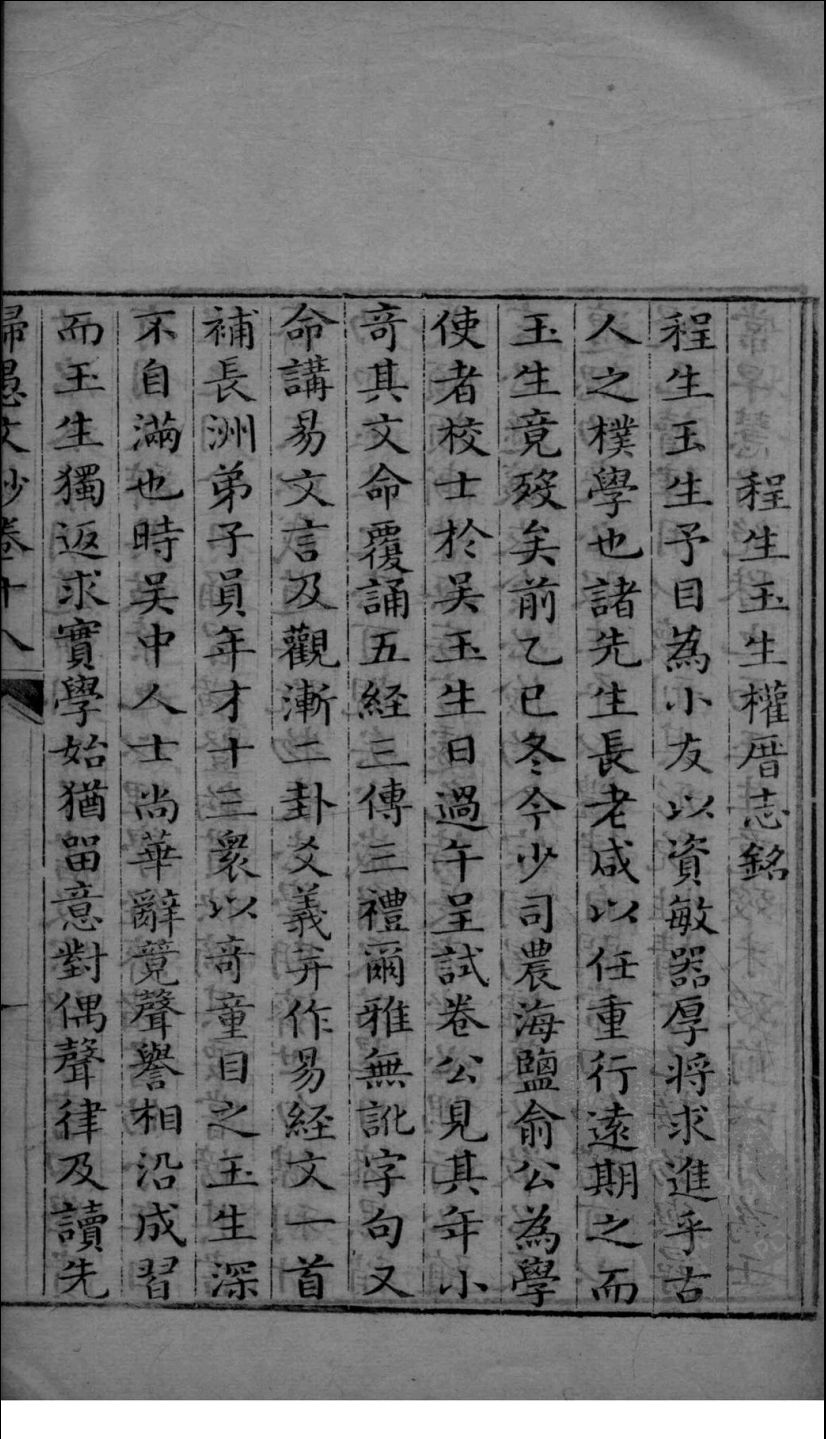 程生玉生權厝志銘
程生玉生予目為小友以資敏器厚将求進乎古
人之樸學也諸先生長老咸以任重行遠期之而
玉生竟歿矣前乙巳冬今少司農海鹽俞公為學
使者校士於吴玉生日過午呈試卷公見其年小
竒其文命覆誦五經三傳三禮爾雅無訛字句又
命講易文言及觀漸二卦爻義并作易經文一首
補長洲弟子員年才十三衆以竒童目之玉生深
不自滿也時吴中人士尚華辭競聲譽相沿成習
而玉生獨返求實學始猶留意對偶聲律及讀先
歸愚文鈔卷十八